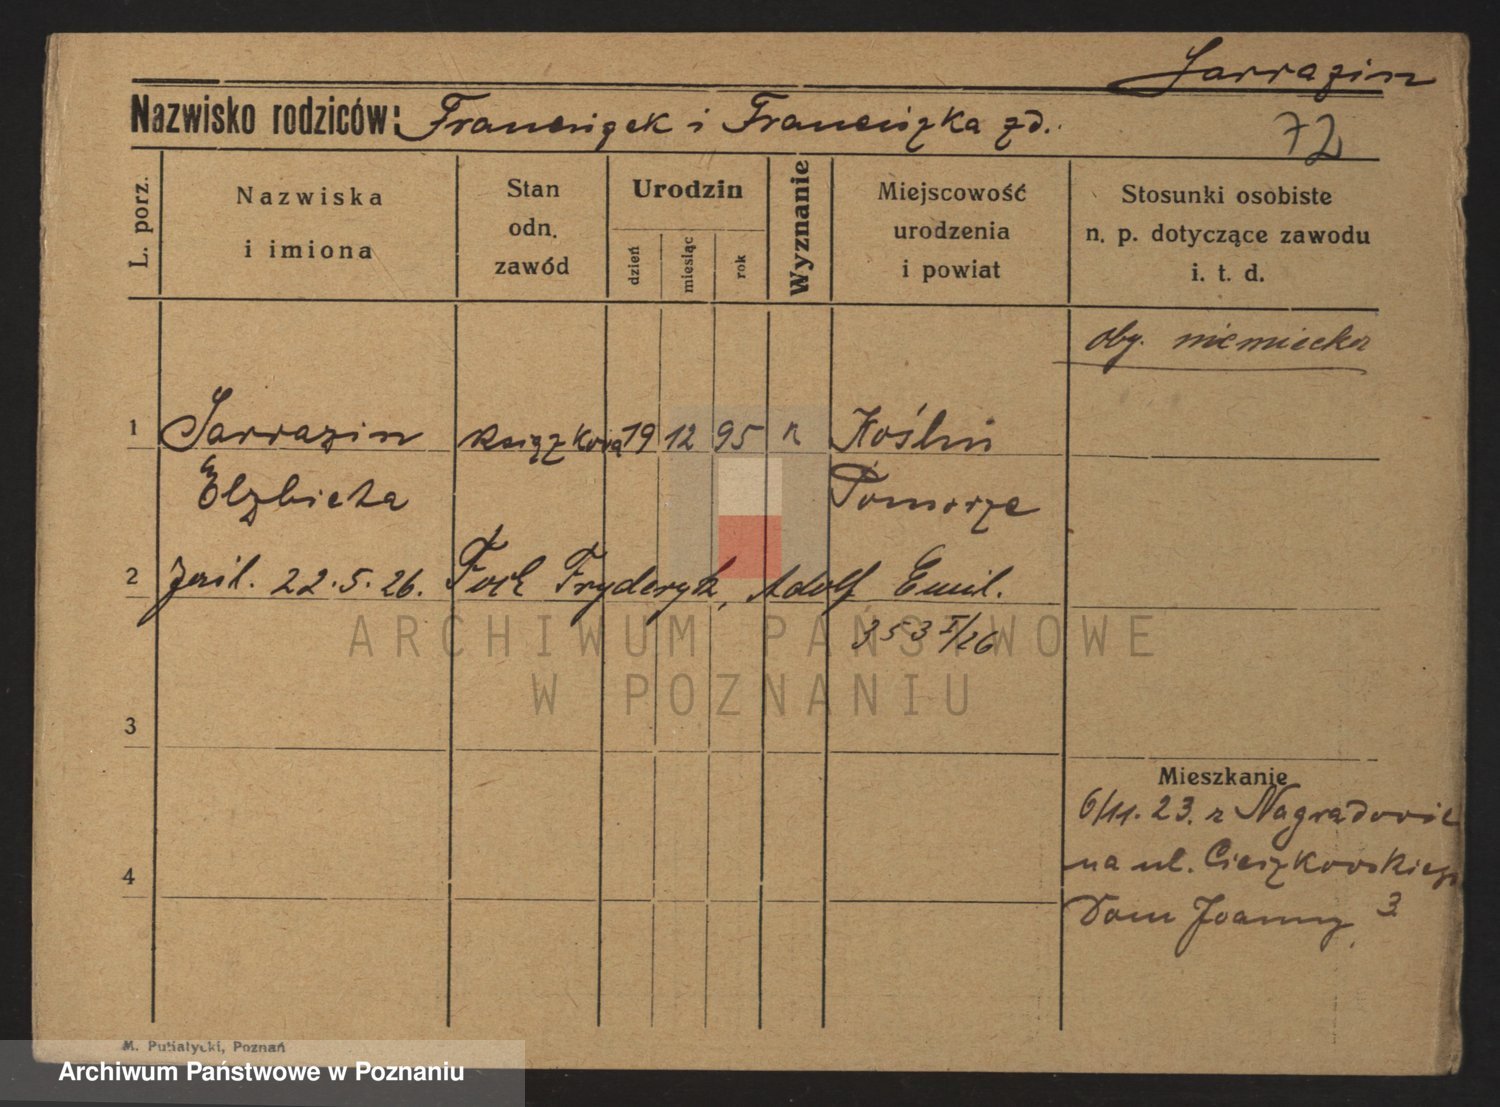 Sarrazin
Nazwisko rodziców: Franciszek i Franciszka zd.
72
L. porz.
Nazwiska
i imiona
Stan
odn.
zawód
Urodzin
dzień
miesiąc
rok
Wyznanie
Miejscowość
urodzenia
i powiat
Stosunki osobiste
n. p. dotyczące zawodu
i. t. d.
oby. niemiecka
1 Sarrazin książkowa 19 12 95 Koślin
Elżbieta Pomorze
2 22.5.26. Fryderyk, Adolf Emil.
353 I/26
ARCHIWUM PAŃSTWOWE
W POZNANIU
3
Mieszkanie
6/11. 23. z Nagradowic
4 na ul. Cieszkowskiego
Dom Joanny 3
M. Putiatycki, Poznań
Archiwum Państwowe w Poznaniu